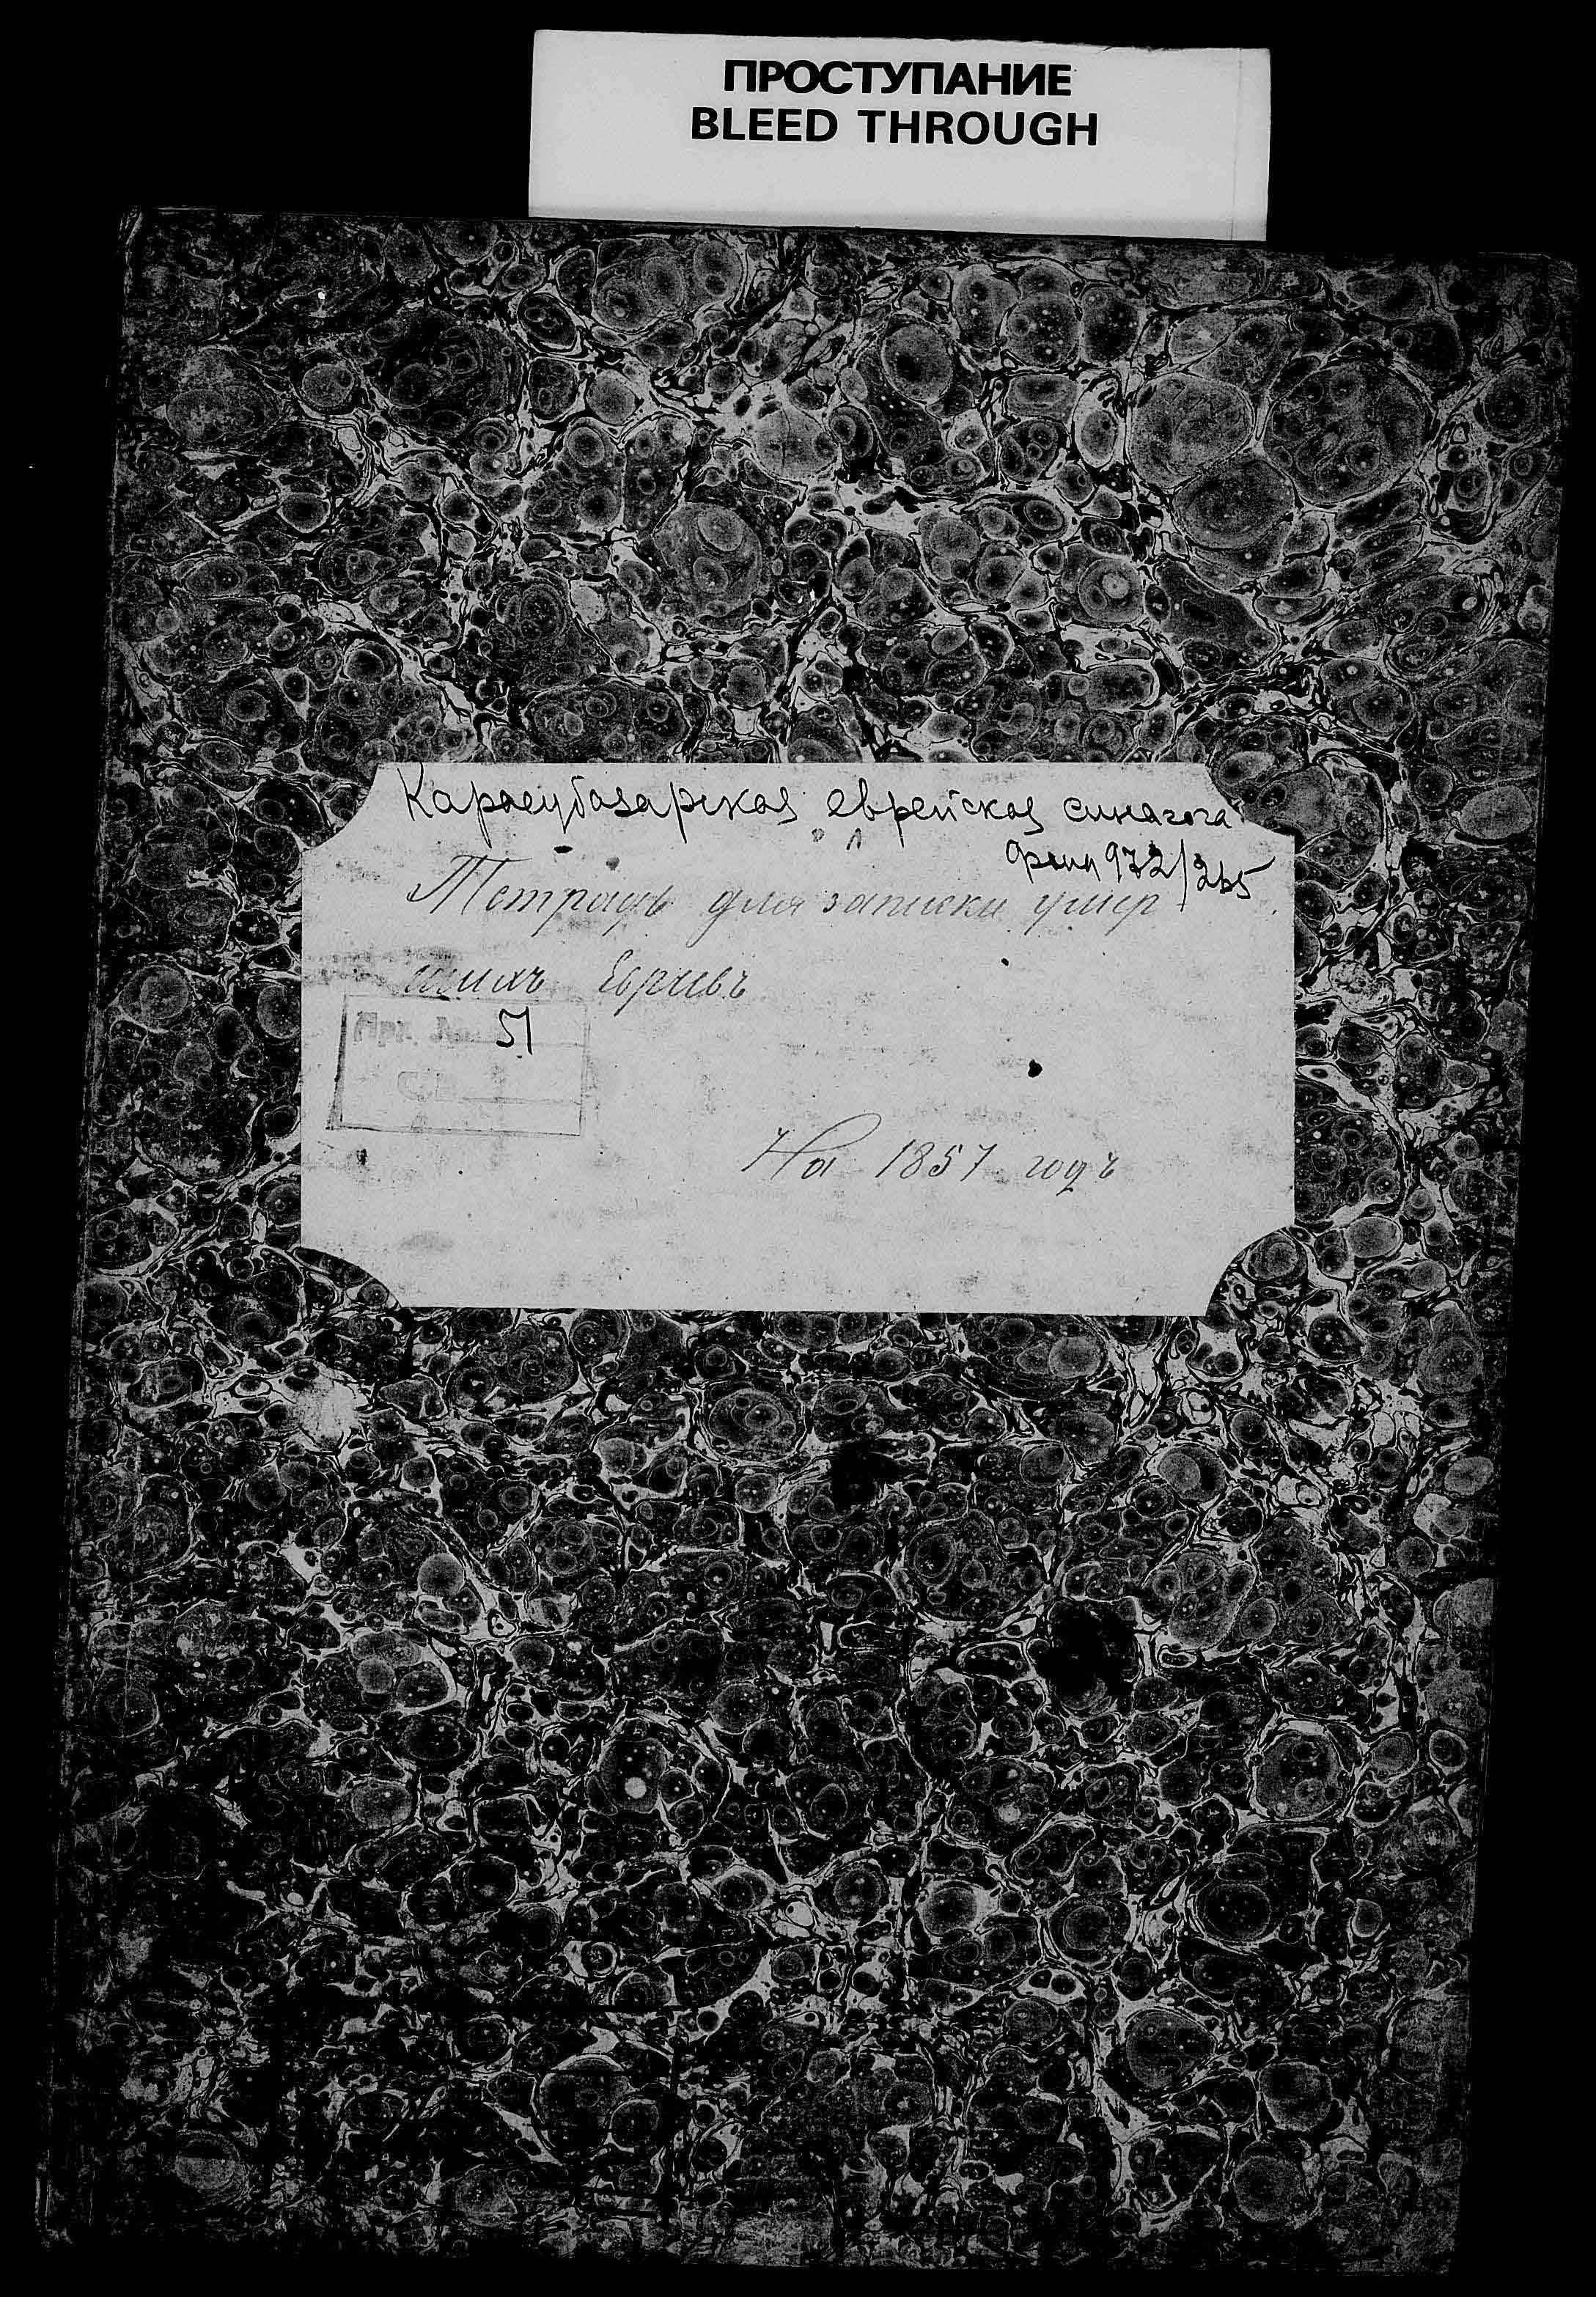 ПРОСТУПАНИЕ
BLEED THROUGH
Карасубазарская еврейская синагога
фонд 972/265
Тетрадь для записки умер
шихъ Евреевъ
Арх. № 51
На 1857 годъ